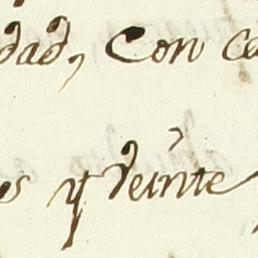 dad, Con ca
s y veinte